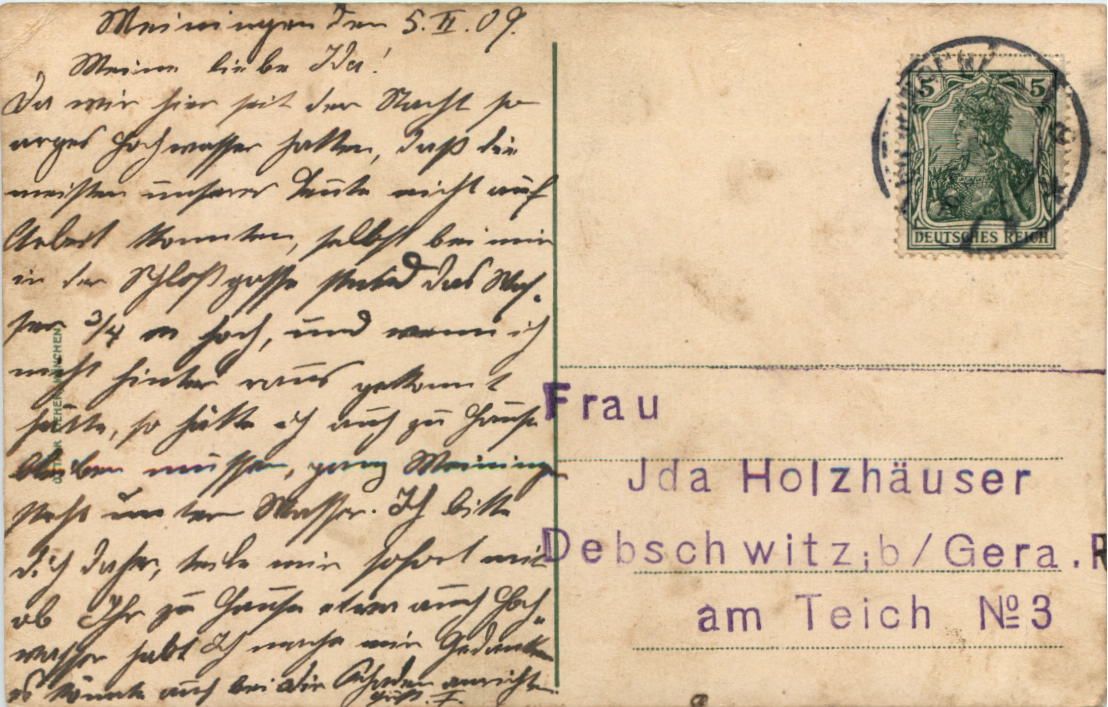 Meiningen den 5. II. 09.
Meine liebe Ida!
Da wir hier seit der Nacht so
arges Hochwasser hatten, daß die
meisten unserer Leute nicht auf
Arbeit konnten, selbst bei mir
in der Schloßgasse stand das Was-
ser 3/4 m hoch, und wenn ich
nicht hinten raus gekonnt
hätte, so hätte ich auch zu Hause
bleiben müssen, ganz Meiningen
steht unter Wasser. Ich bitte
dich daher, teile mir sofort mit
ob Ihr zu Hause etwa auch Hoch-
wasser habt Ich mache mir Gedanken
es könnte auch bei dir Schaden anrichten
MÜNCHEN
5 5
DEUTSCHES REICH
Frau
Jda Holzhäuser
Debschwitz; b/Gera. R
am Teich No 3